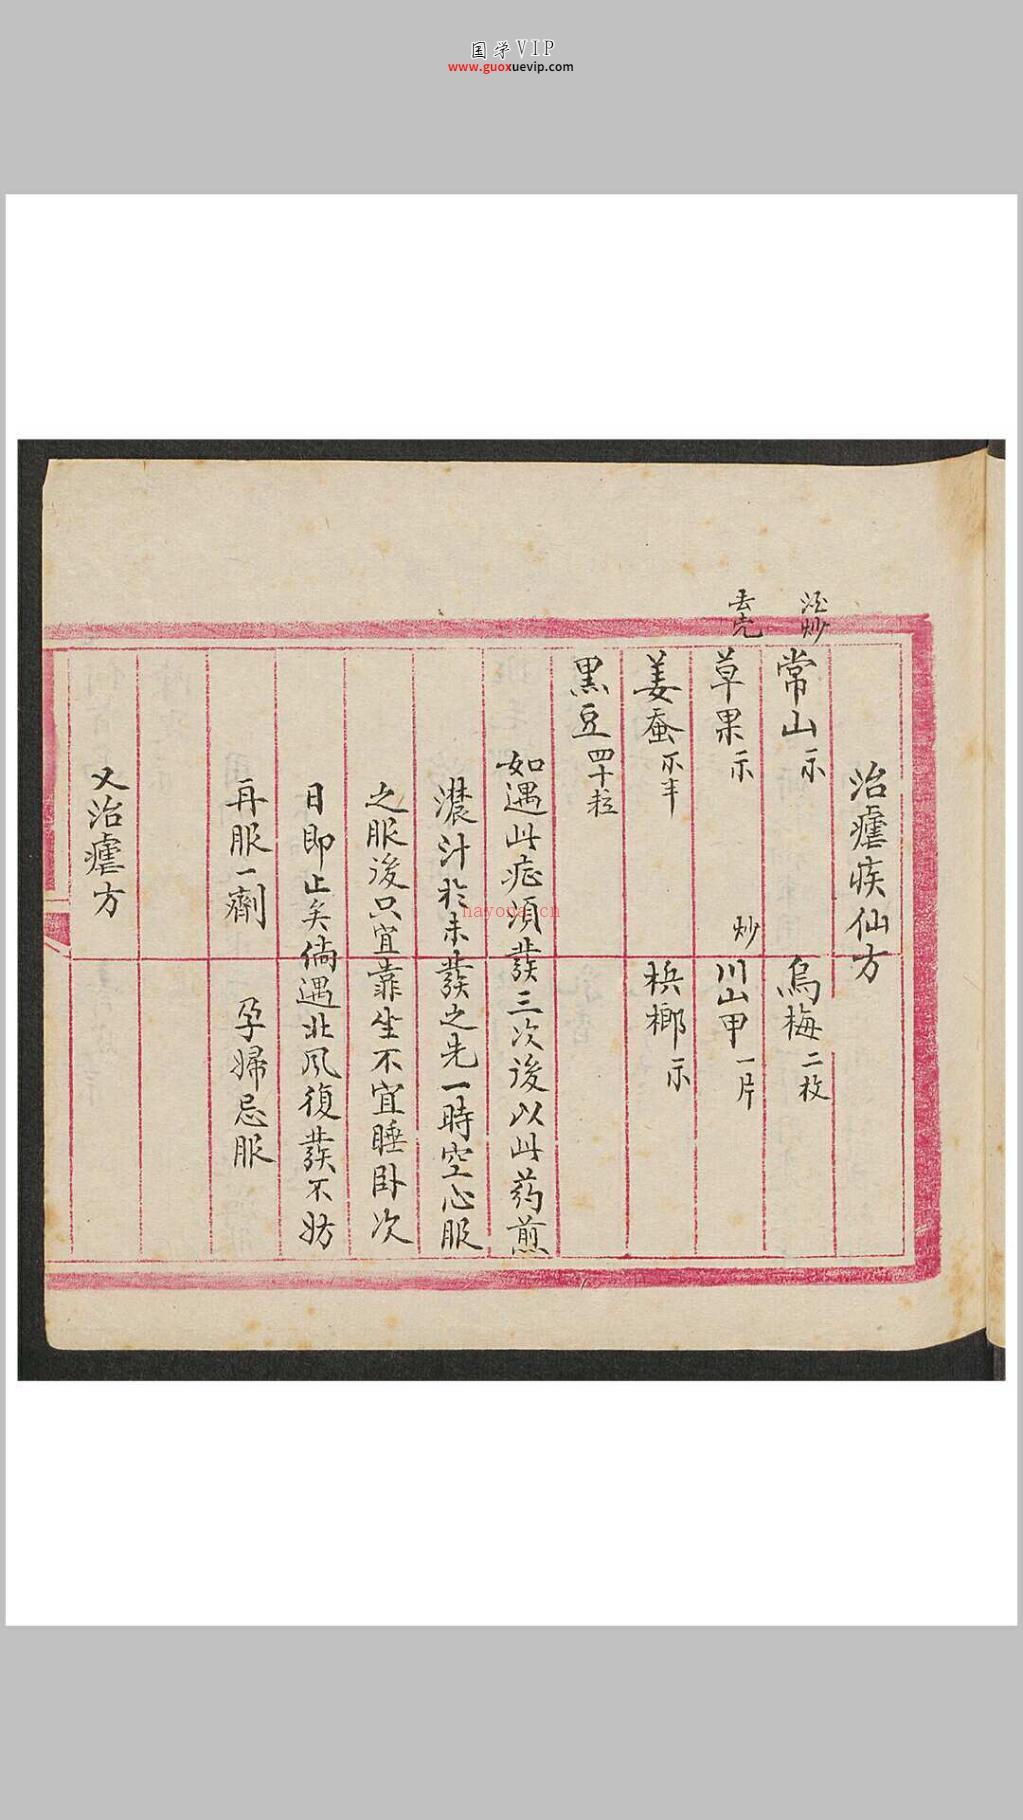 国学VIP
www.guoxuevip.com
治瘧疾仙方
炒
常山 烏梅二枚
去壳
草果 炒 川山甲一片
姜蚕 梹榔
黑豆四十粒
如遇此症須發三次後以此药煎
濃汁於未發之先一時空心服
之服後只宜靠坐不宜睡卧次
日即止矣倘遇北风復發不妨
再服一劑 孕婦忌服
又治瘧方
nayona.cn